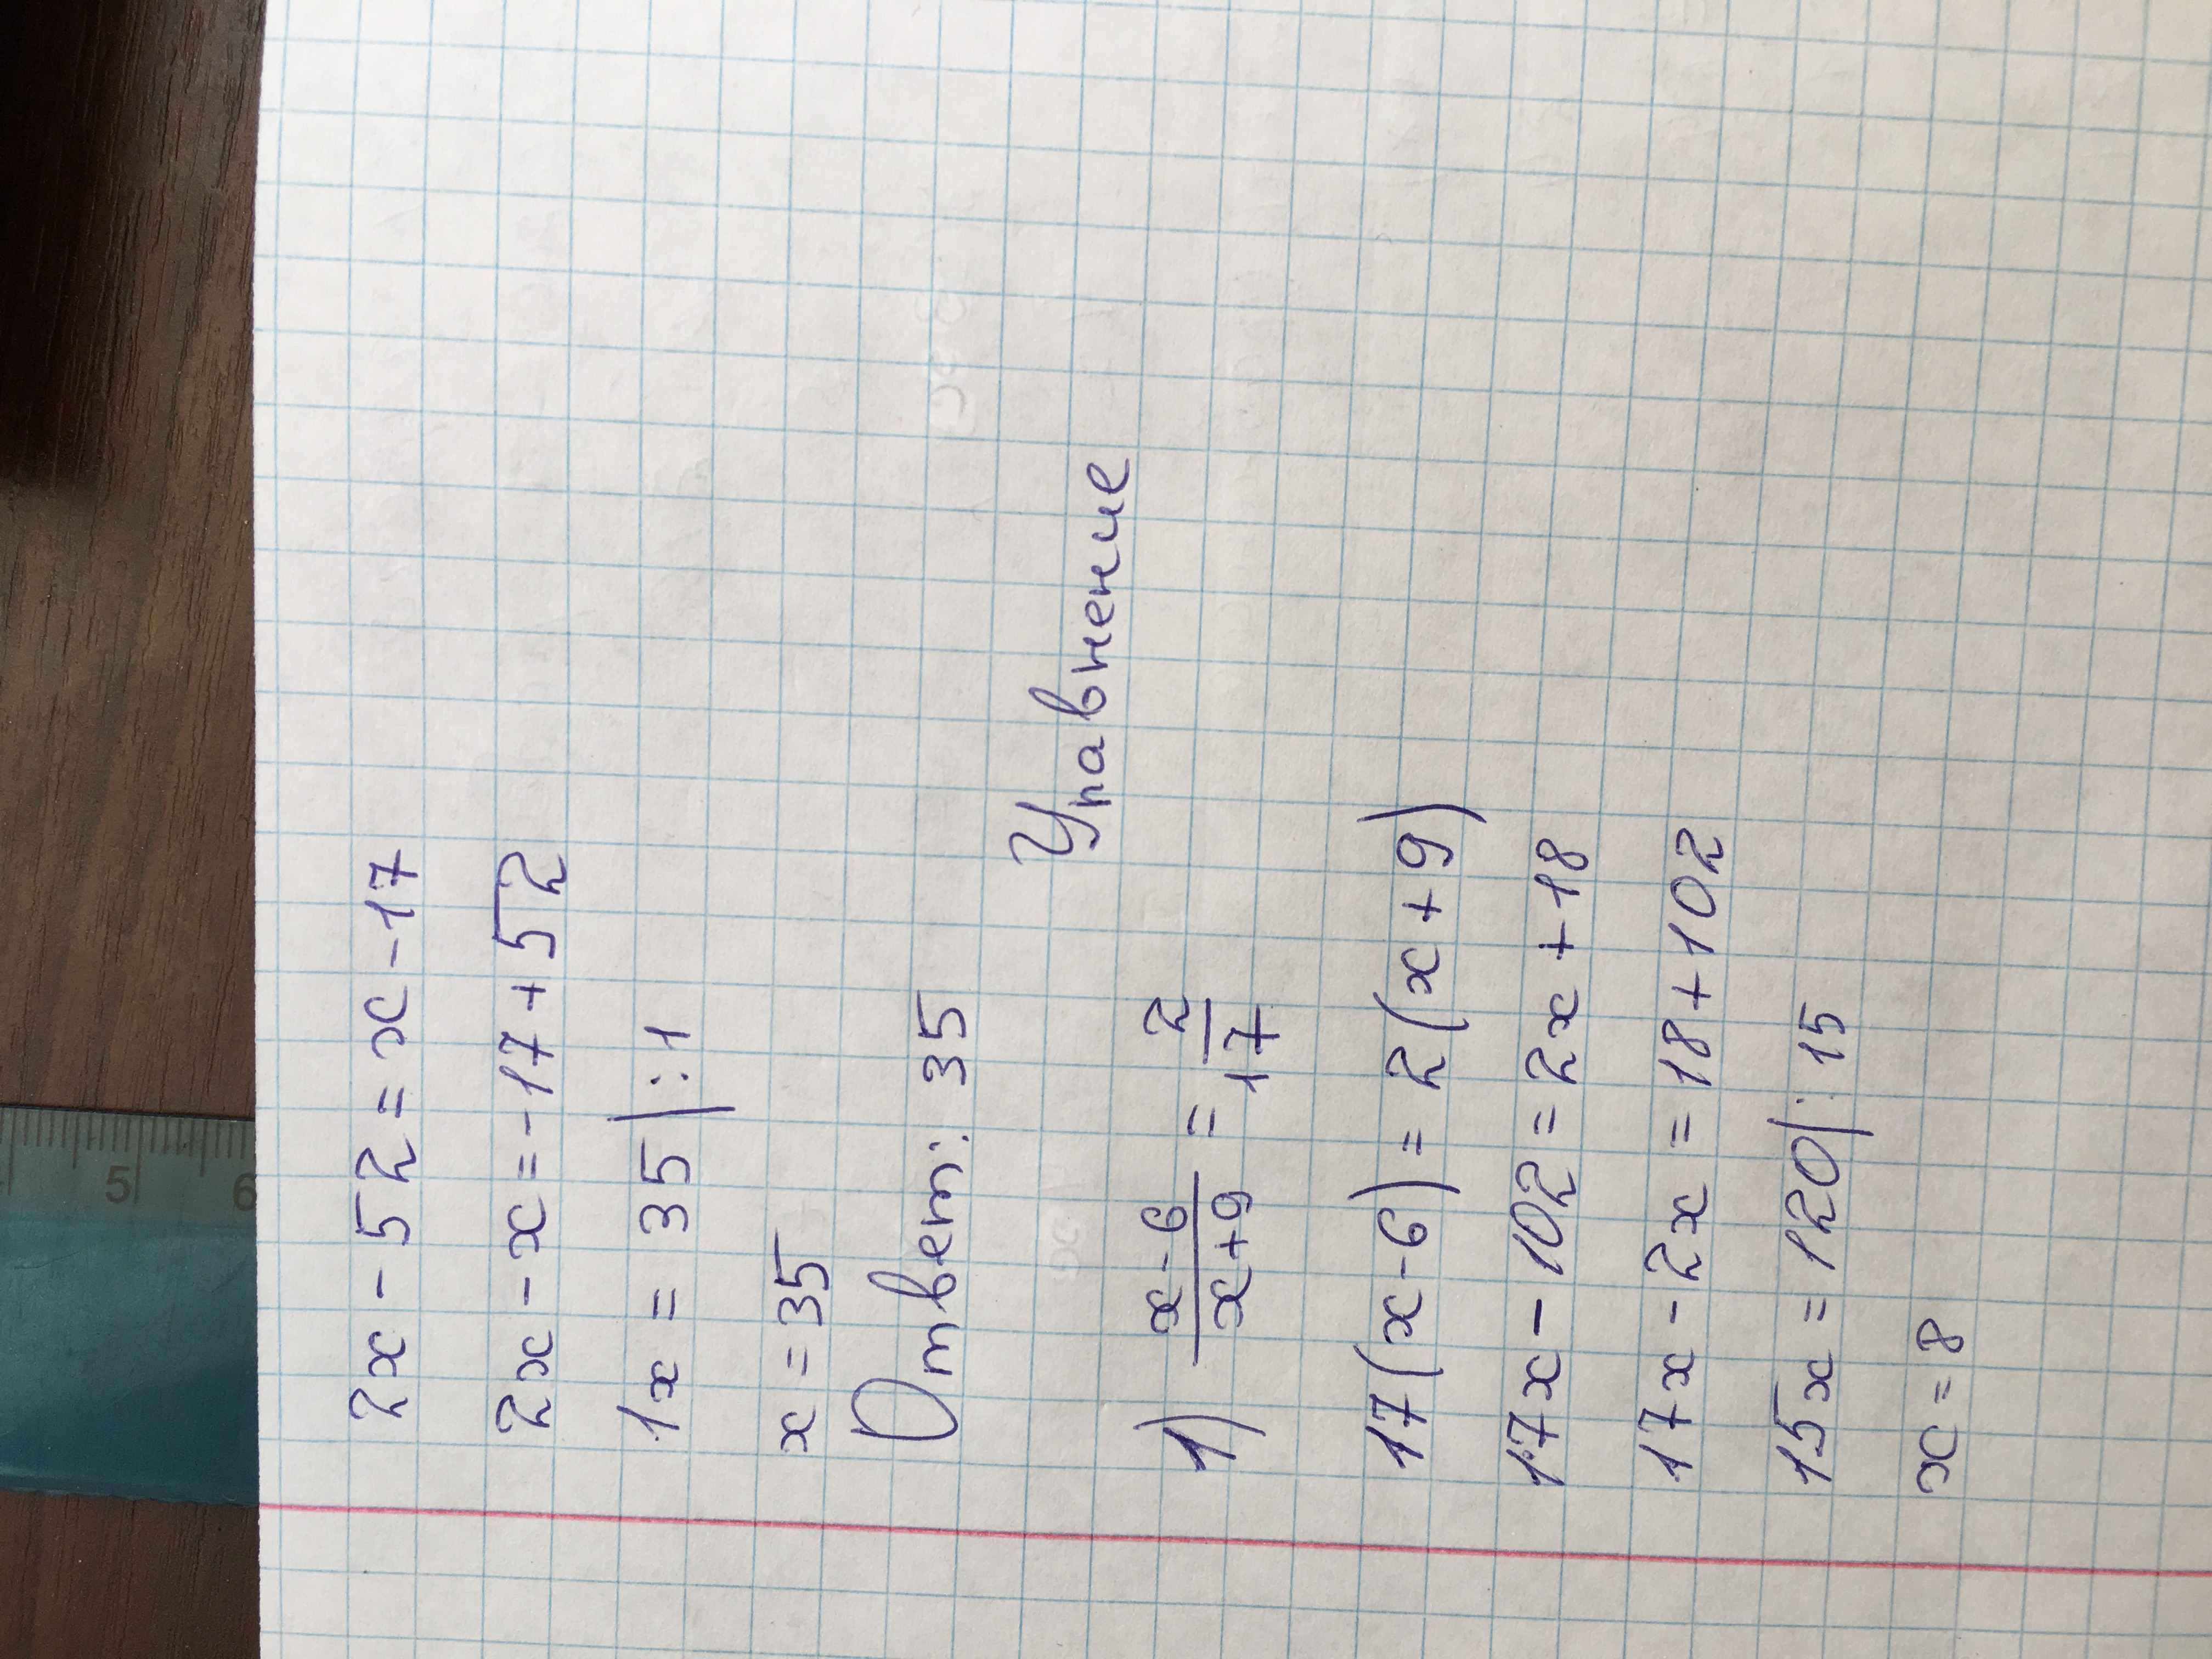 2x - 52 = x - 17
2x - x = -17 + 52
1x = 35 | : 1
x = 35
Ответ: 35
Уравнение
1) (x - 6)/(x + 9) = 2/17
17(x - 6) = 2(x + 9)
17x - 102 = 2x + 18
17x - 2x = 18 + 102
15x = 120 | : 15
x = 8
5
6